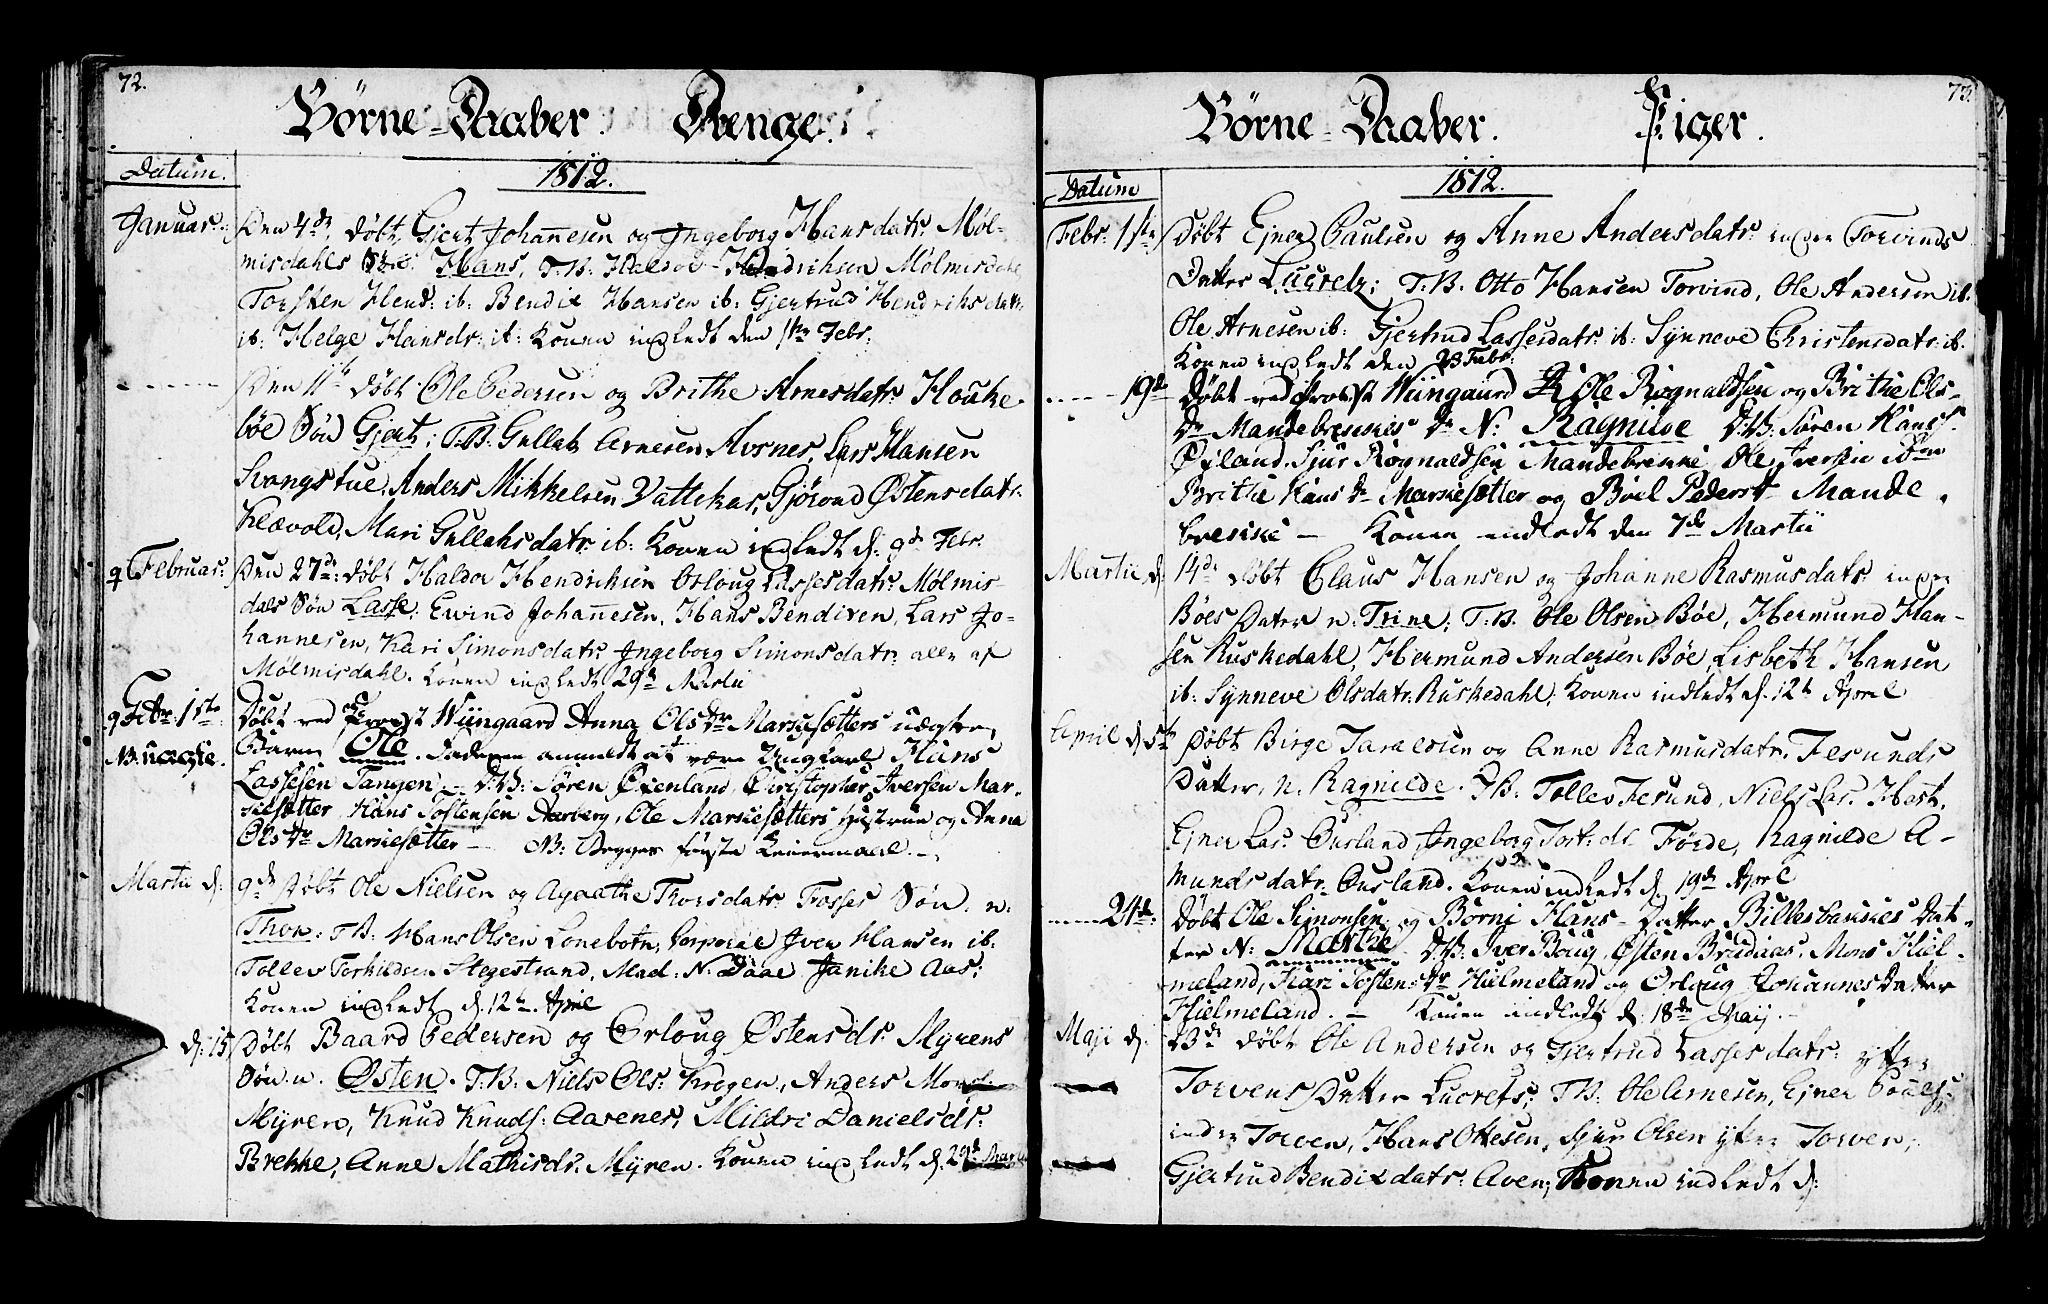 72.
Börne-Daaber. Drenge.
Datum.
1812.
Januar: Den 4de döbt Gjert Johañesen og Ingeborg Hansdatr: Möl-
misdahls Sön: Hans, T.B. Haldor Hendrichsen Mölmisdahl
Torsten Hend: ib: Bendix Hansen ib: Gjertrud Hendriksdatr:
ib: Helge Hansdr: ib: Konen indledt den 1ste Febr:
Den 11te döbt Ole Pedersen og Brithe Arnesdatr: Houke-
böe Sön Gjert; T.B. Gullak Arnesen Avsnes, Lars Hansen
Svangstue, Anders Mikkelsen Vattekar, Gjörond Östensdatr:
Klævold, Mari Gullaksdatr: ib: Konen indledt d: 9de Febr.
9 Februar: Den 27de: döbt Haldor Hendrichsen Orloug Lassesdatr: Mölmis-
dals Sön Lasse; Ewind Johañesen, Hans Bendixen, Lars Jo-
hannesen, Kari Simonsdatr: Ingeborg Simonsdatr: alle af
Mölmisdahl. Konen indledt 29de Martii
9 Febr. 1ste Döbt ved Provst Wiingaard Anna Ols Dr Marsiesætters uægte
NB: uægte. Barn Ole. Faderen anmeldt at være Ungkarl Hans
Lassesen Tangen — T.B: Sören Öxenland, Christopher Iversen Mar-
siesætter, Hans Tostensen Aarberg, Ole Marsiesætters Hustrue og Anna
Ols Dr Marsiesætter — NB: Begges förste Leiermaal. —
Martii d: 9de Döbt Ole Nielsen og Agaathe Thorsdatr: Fosses Sön: n:
Thor: T.B: Hans Olsen Lonebotn, Corporal Iver Hansen ib:
Tollev Torkildsen Stegestrand, Mad: N: Daae Janike Aas;
Konen indledt d: 12te April
d: 15 Döbt Baard Pedersen og Orloug Östensdr: Myrens
Sön n. Östen. T.B: Niels Ols: Krogen, Anders
Myren, Knud Knuds: Aarenes, Mildri Danielsdr:
Brekke, Anne Mathisdr: Myren. Konen indledt d. 29de Martii
73.
Börne-Daaber. Piger.
Datum
1812.
Febr: 1ste Döbt Ejner Paulsen og Anne Andersdatr: indre Torvinds
Datter Lucretz; T.B. Otto Hansen Torvind, Ole Andersen ib:
Ole Arnesen ib: Gjertrud Lassesdatr: ib: Synneve Christensdatr: ib.
Konen indledt den Febr:
19de Döbt ved Provst Wiingaard Ole Rognaldsen og Brithe Ols-
Dr Mandebresikes Dr N: Ragnilde T.B: Sören Hans.
Öxland, Sjur Rognaldsen Mandebrekke, Ole Iversen
Brithe Hans Dr Marsiesætter og Böel Pedersd Mande-
bresike — Konen indledt den 7de Martii
Martii d: 14de döbt Claus Hansen og Johanne Rasmusdatr: indre
Böes Dater n: Trine; T.B. Ole Olsen Böe, Hermund Han-
sen Ruskedahl, Hermund Andersen Böe, Lisbeth Hansen
ib: Synneve Olsdatr: Ruskedahl, Konen indledt d. 12te April
April d: 5te Döbt Birge Taralsen og Anne Rasmusdatr: Fesunds
Datter, n. Ragnilde. T.B: Tollev Fesund, Niels Las.
Ejner Las: Ousland, Ingeborg Tost: dr Förde, Ragnilde A-
mundsdatr: Ousland. Konen indledt d: 19de April
24de: Döbt Ole Simonsen og Börni Hans- Datter Dat-
ter N: Marthe T.B: Iver Boug, Östen Mons Hiel-
meland, Kari Tostens Dr Hielmeland og Orloug Johannes Datter
Hielmeland. — Konen indledt d: 18de Maij. —
Maji d: 3de döbt Ole Andersen og Gjertrud Lassesdatr: ytre
Torvens Datter Lucrets; T.B: Ole Arnesen, Ejner Pouels:
indre Torven, Hans Ottesen, Sjur Olsen ytre Torven;
Gjertrud Bendixdatr: Aven; Konen indledt d: